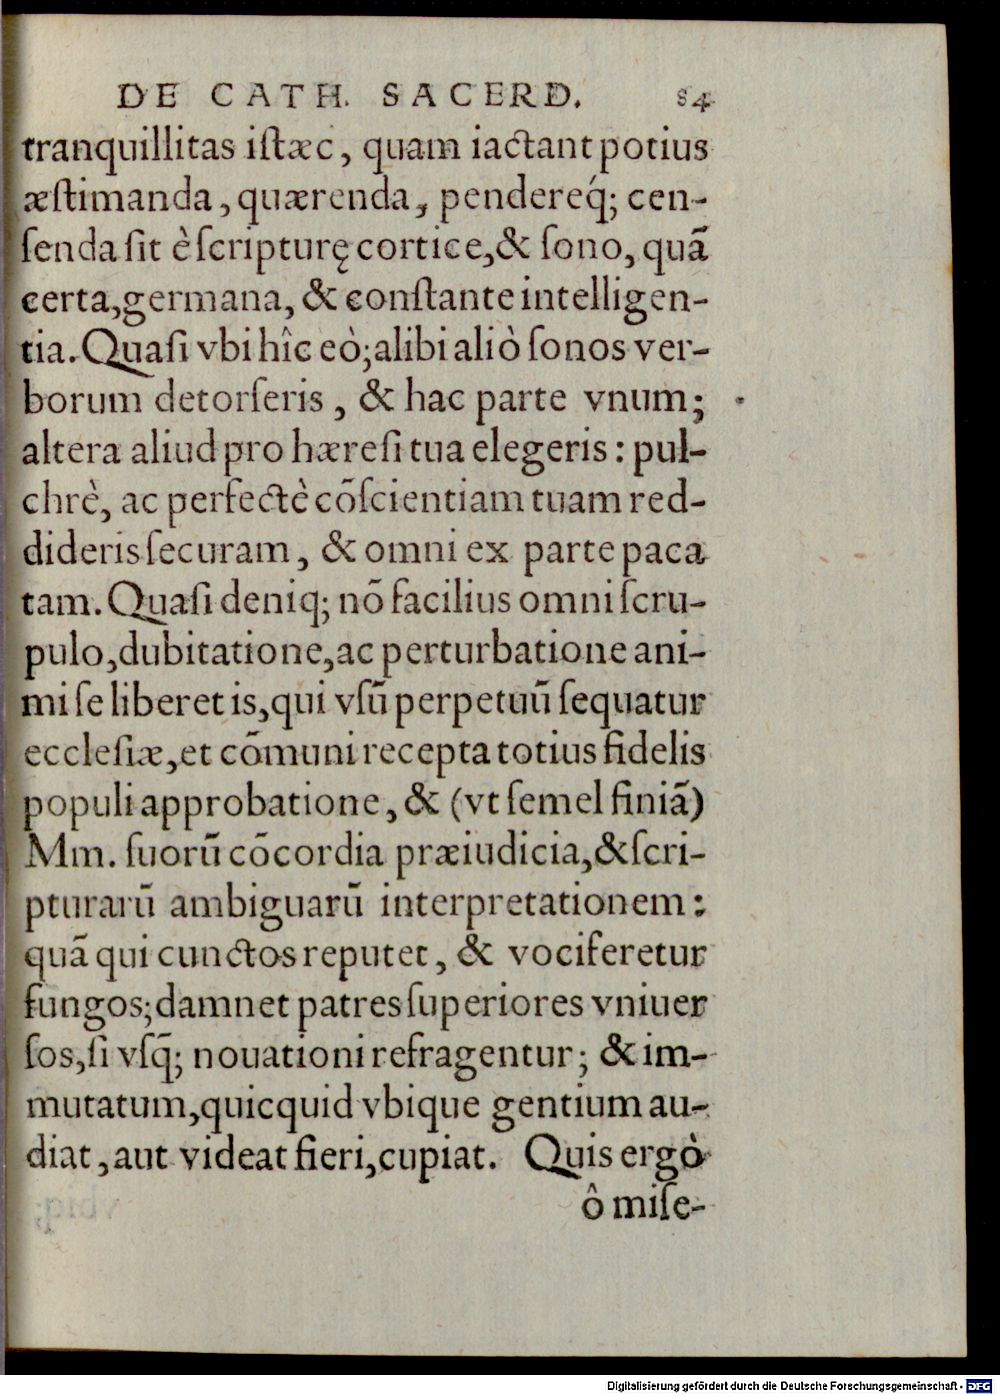 DE CATH. SACERD. 84
tranquillitas iſtæc, quam iactant potius
æſtimanda, quærenda, pendereq́; cen-
ſenda ſit è ſcripturę cortice, & ſono, quã
certa, germana, & conſtante intelligen-
tia. Quaſi vbi hîc eò; alibi aliò ſonos ver-
borum detorſeris, & hac parte vnum;
altera aliud pro hæreſi tua elegeris: pul-
chrè, ac perfectè cõſcientiam tuam red-
dideris ſecuram, & omni ex parte paca
tam. Quaſi deniq; nõ facilius omni ſcru-
pulo, dubitatione, ac perturbatione ani-
mi ſe liberet is, qui vſũ perpetuũ ſequatur
eccleſiæ, et cõmuni recepta totius fidelis
populi approbatione, & (vt ſemel finiã)
Mm. ſuorũ cõcordia præiudicia, & ſcri-
pturarũ ambiguarũ interpretationem:
quã qui cunctos reputet, & vociferetur
fungos; damnet patres ſuperiores vniuer
ſos, ſi vſq̃; nouationi refragentur; & im-
mutatum, quicquid vbique gentium au-
diat, aut videat fieri, cupiat. Quis ergò
ô miſe-
vbiq;
Digitalisierung gefördert durch die Deutsche Forschungsgemeinschaft - DFG